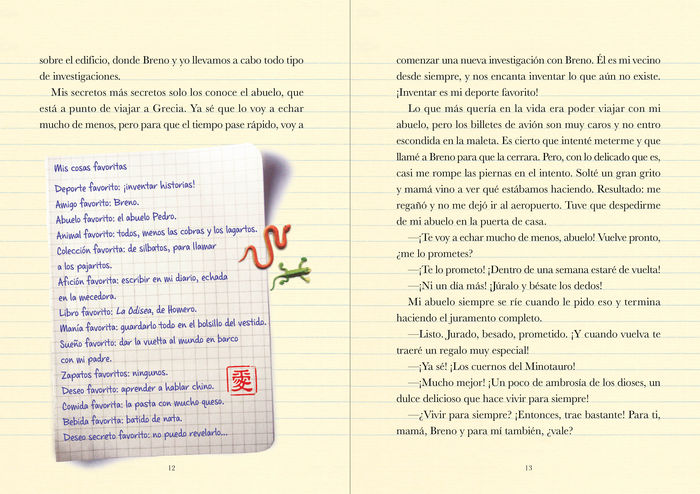 sobre el edificio, donde Breno y yo llevamos a cabo todo tipo
de investigaciones.
Mis secretos más secretos solo los conoce el abuelo, que
está a punto de viajar a Grecia. Ya sé que lo voy a echar
mucho de menos, pero para que el tiempo pase rápido, voy a
Mis cosas favoritas
Deporte favorito: ¡inventar historias!
Amigo favorito: Breno.
Abuelo favorito: el abuelo Pedro.
Animal favorito: todos, menos las cobras y los lagartos.
Colección favorita: de silbatos, para llamar
a los pajaritos.
Afición favorita: escribir en mi diario, echada
en la mecedora.
Libro favorito: La Odisea, de Homero.
Manía favorita: guardarlo todo en el bolsillo del vestido.
Sueño favorito: dar la vuelta al mundo en barco
con mi padre.
Zapatos favoritos: ningunos.
Deseo favorito: aprender a hablar chino.
Comida favorita: la pasta con mucho queso.
Bebida favorita: batido de nata.
Deseo secreto favorito: no puedo revelarlo...
12
comenzar una nueva investigación con Breno. Él es mi vecino
desde siempre, y nos encanta inventar lo que aún no existe.
¡Inventar es mi deporte favorito!
Lo que más quería en la vida era poder viajar con mi
abuelo, pero los billetes de avión son muy caros y no entro
escondida en la maleta. Es cierto que intenté meterme y que
llamé a Breno para que la cerrara. Pero, con lo delicado que es,
casi me rompe las piernas en el intento. Solté un gran grito
y mamá vino a ver qué estábamos haciendo. Resultado: me
regañó y no me dejó ir al aeropuerto. Tuve que despedirme
de mi abuelo en la puerta de casa.
—¡Te voy a echar mucho de menos, abuelo! Vuelve pronto,
¿me lo prometes?
—¡Te lo prometo! ¡Dentro de una semana estaré de vuelta!
—¡Ni un día más! ¡Júralo y bésate los dedos!
Mi abuelo siempre se ríe cuando le pido eso y termina
haciendo el juramento completo.
—Listo. Jurado, besado, prometido. ¡Y cuando vuelva te
traeré un regalo muy especial!
—¡Ya sé! ¡Los cuernos del Minotauro!
—¡Mucho mejor! ¡Un poco de ambrosía de los dioses, un
dulce delicioso que hace vivir para siempre!
—¿Vivir para siempre? ¡Entonces, trae bastante! Para ti,
mamá, Breno y para mí también, ¿vale?
13